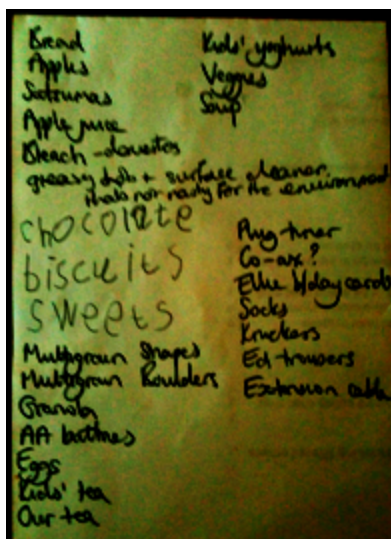 Bread
Apples
Satsumas
Apple juice
Bleach - domestos
greasy dish + surface cleaner
thats not nasty for the environment
chocolate
biscuits
sweets
Multigrain Shapes
Multigrain Boulders
Granola
AA batteries
Eggs
Kids' tea
Our tea
Kids' yoghurts
Veggies
Soup
Plug-timer
Co-ax?
Ellie b/day cards
Socks
Knickers
Ed-trousers
Extension cable